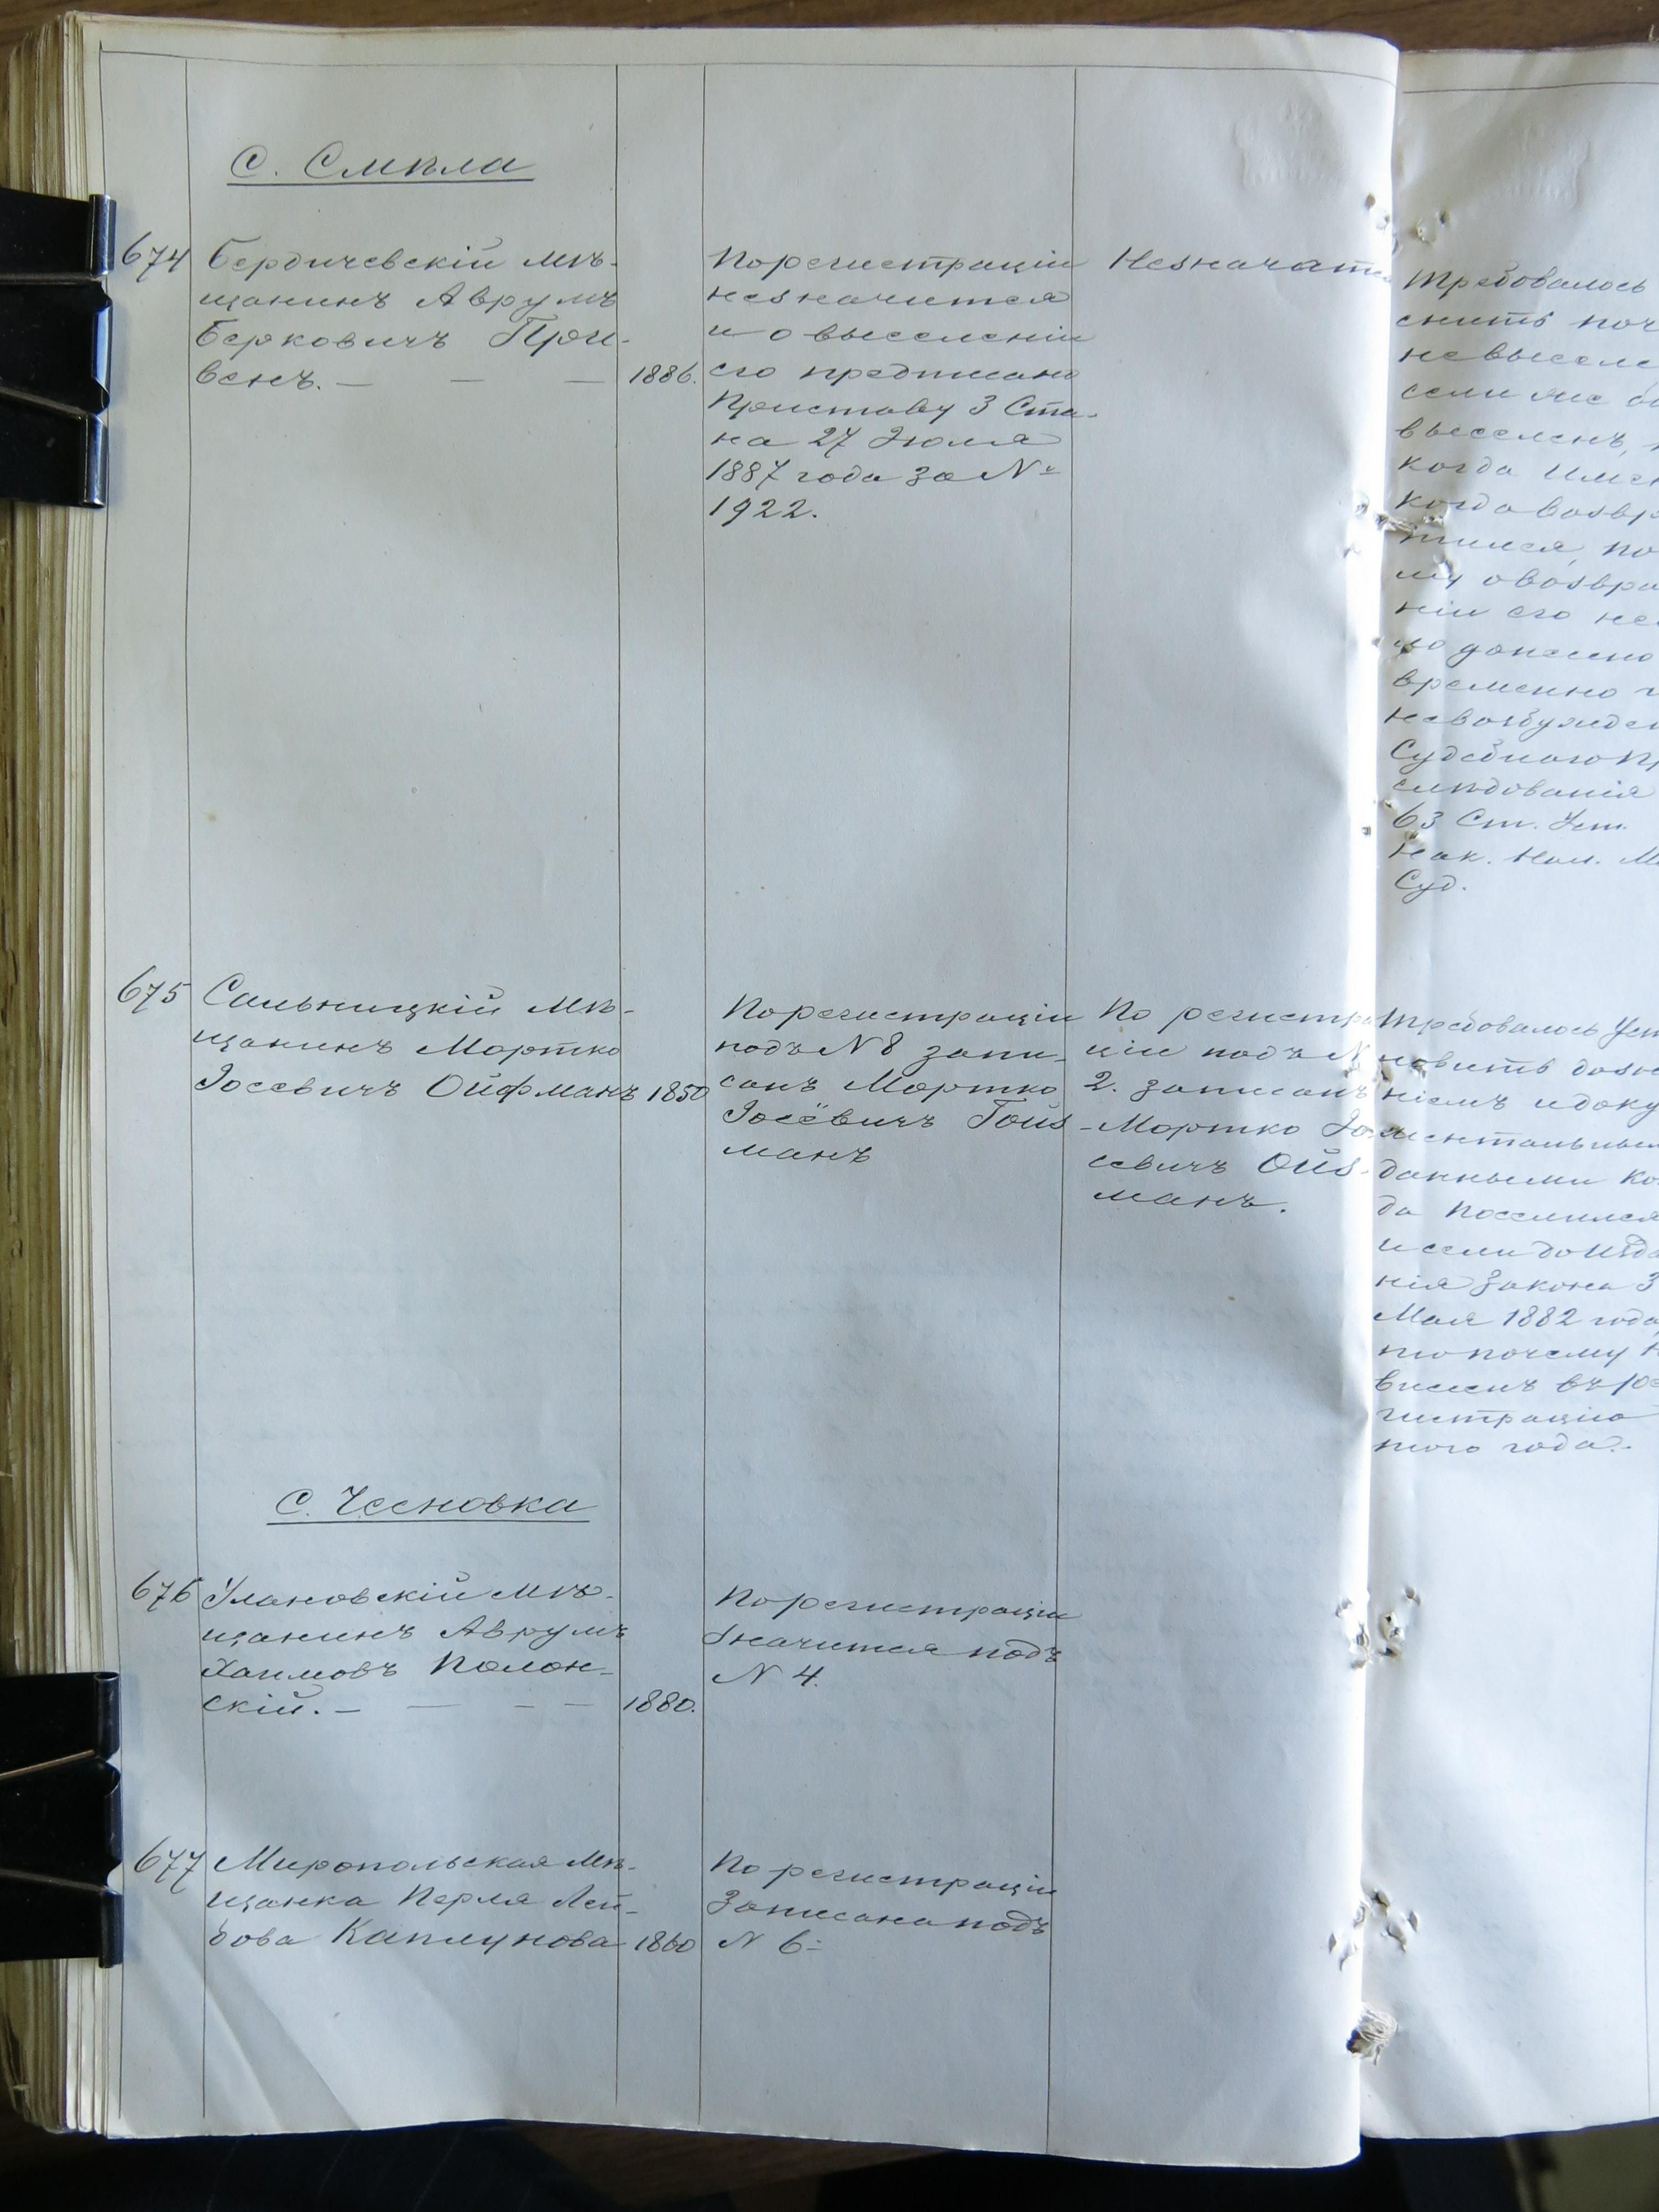 С. Смѣла
674
Бердичевскій мѣ-
щанинъ Аврумъ
Берковичъ При-
венъ. — — —
1886.
По регистраціи
незначится
и о выселеніи
его предписано
Приставу 3 Ста-
на 27 Іюля
1887 года за №
1922.
Незначатся
Требовалось
снить поч
невыселе
если же бы
выселенъ,
когда имен
когда возвр
тился, по
му о возвра
ніи его не
но донесено
временно и
невозбужден
Судебнаго п
слѣдованія
63 Ст. Уст.
Нак. Нал. М
Суд.
675
Сальницкій мѣ-
щанинъ Мортко
Іосевичъ Ойфманъ
1850
По регистраціи
подъ № 8 запи-
санъ Мортко
Іосёвичъ Гойз-
манъ
По регистра
ціи подъ №
2. записанъ
Мортко Іо-
севичъ Ойз-
манъ.
Требовалось уст
новить дозн
ніемъ и доку
ментальны
данными ко
да поселился
и если до изда
нія закона 3
Мая 1882 года
то почему н
внесенъ въ ре
гистрацію
того года.
С. Чесновка
676
Улановскій мѣ-
щанинъ Аврумъ
Хаимовъ Полон-
скій. — — — —
1880.
По регистраціи
значится подъ
№ 4.
677
Миропольская мѣ-
щанка Перля Лей-
бова Каплунова
1860
По регистраціи
Записана подъ
№ 6